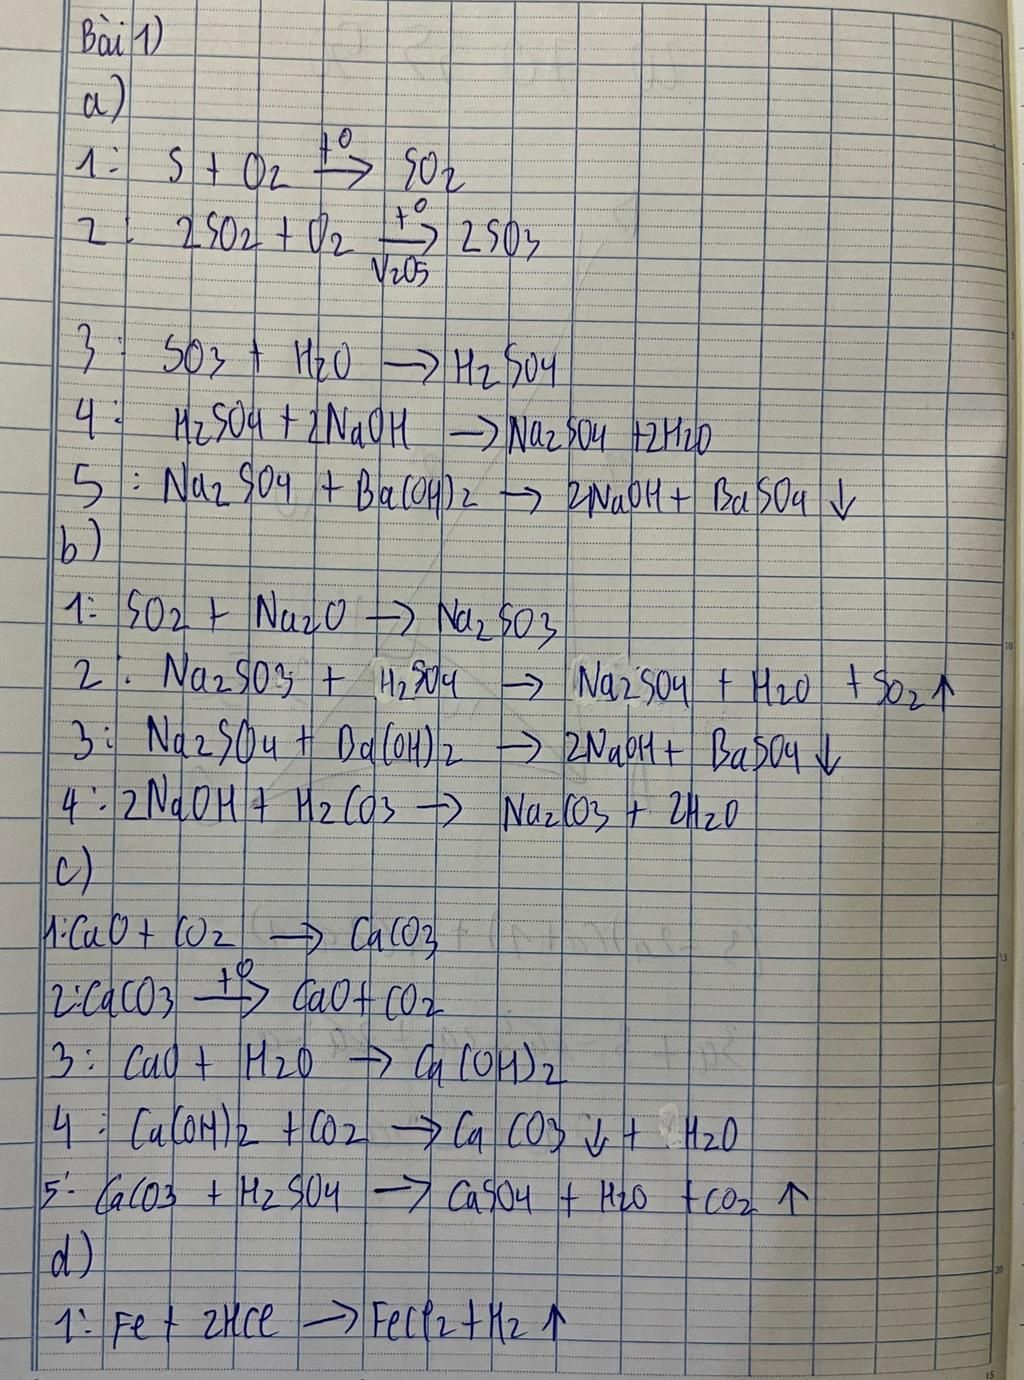 Bài 1)
a)
1: S + O2 t° → SO2
2: 2SO2 + O2 t° → V2O5 2SO3
3: SO3 + H2O → H2SO4
4: H2SO4 + 2NaOH → Na2SO4 + 2H2O
5: Na2SO4 + Ba(OH)2 → 2NaOH + BaSO4 ↓
b)
1: SO2 + Na2O → Na2SO3
2: Na2SO3 + H2SO4 → Na2SO4 + H2O + SO2 ↑
3: Na2SO4 + Ba(OH)2 → 2NaOH + BaSO4 ↓
4: 2NaOH + H2CO3 → Na2CO3 + 2H2O
c)
1: CaO + CO2 → CaCO3
2: CaCO3 t° → CaO + CO2
3: CaO + H2O → Ca(OH)2
4: Ca(OH)2 + CO2 → CaCO3 ↓ + H2O
5: CaCO3 + H2SO4 → CaSO4 + H2O + CO2 ↑
d)
1: Fe + 2HCl → FeCl2 + H2 ↑